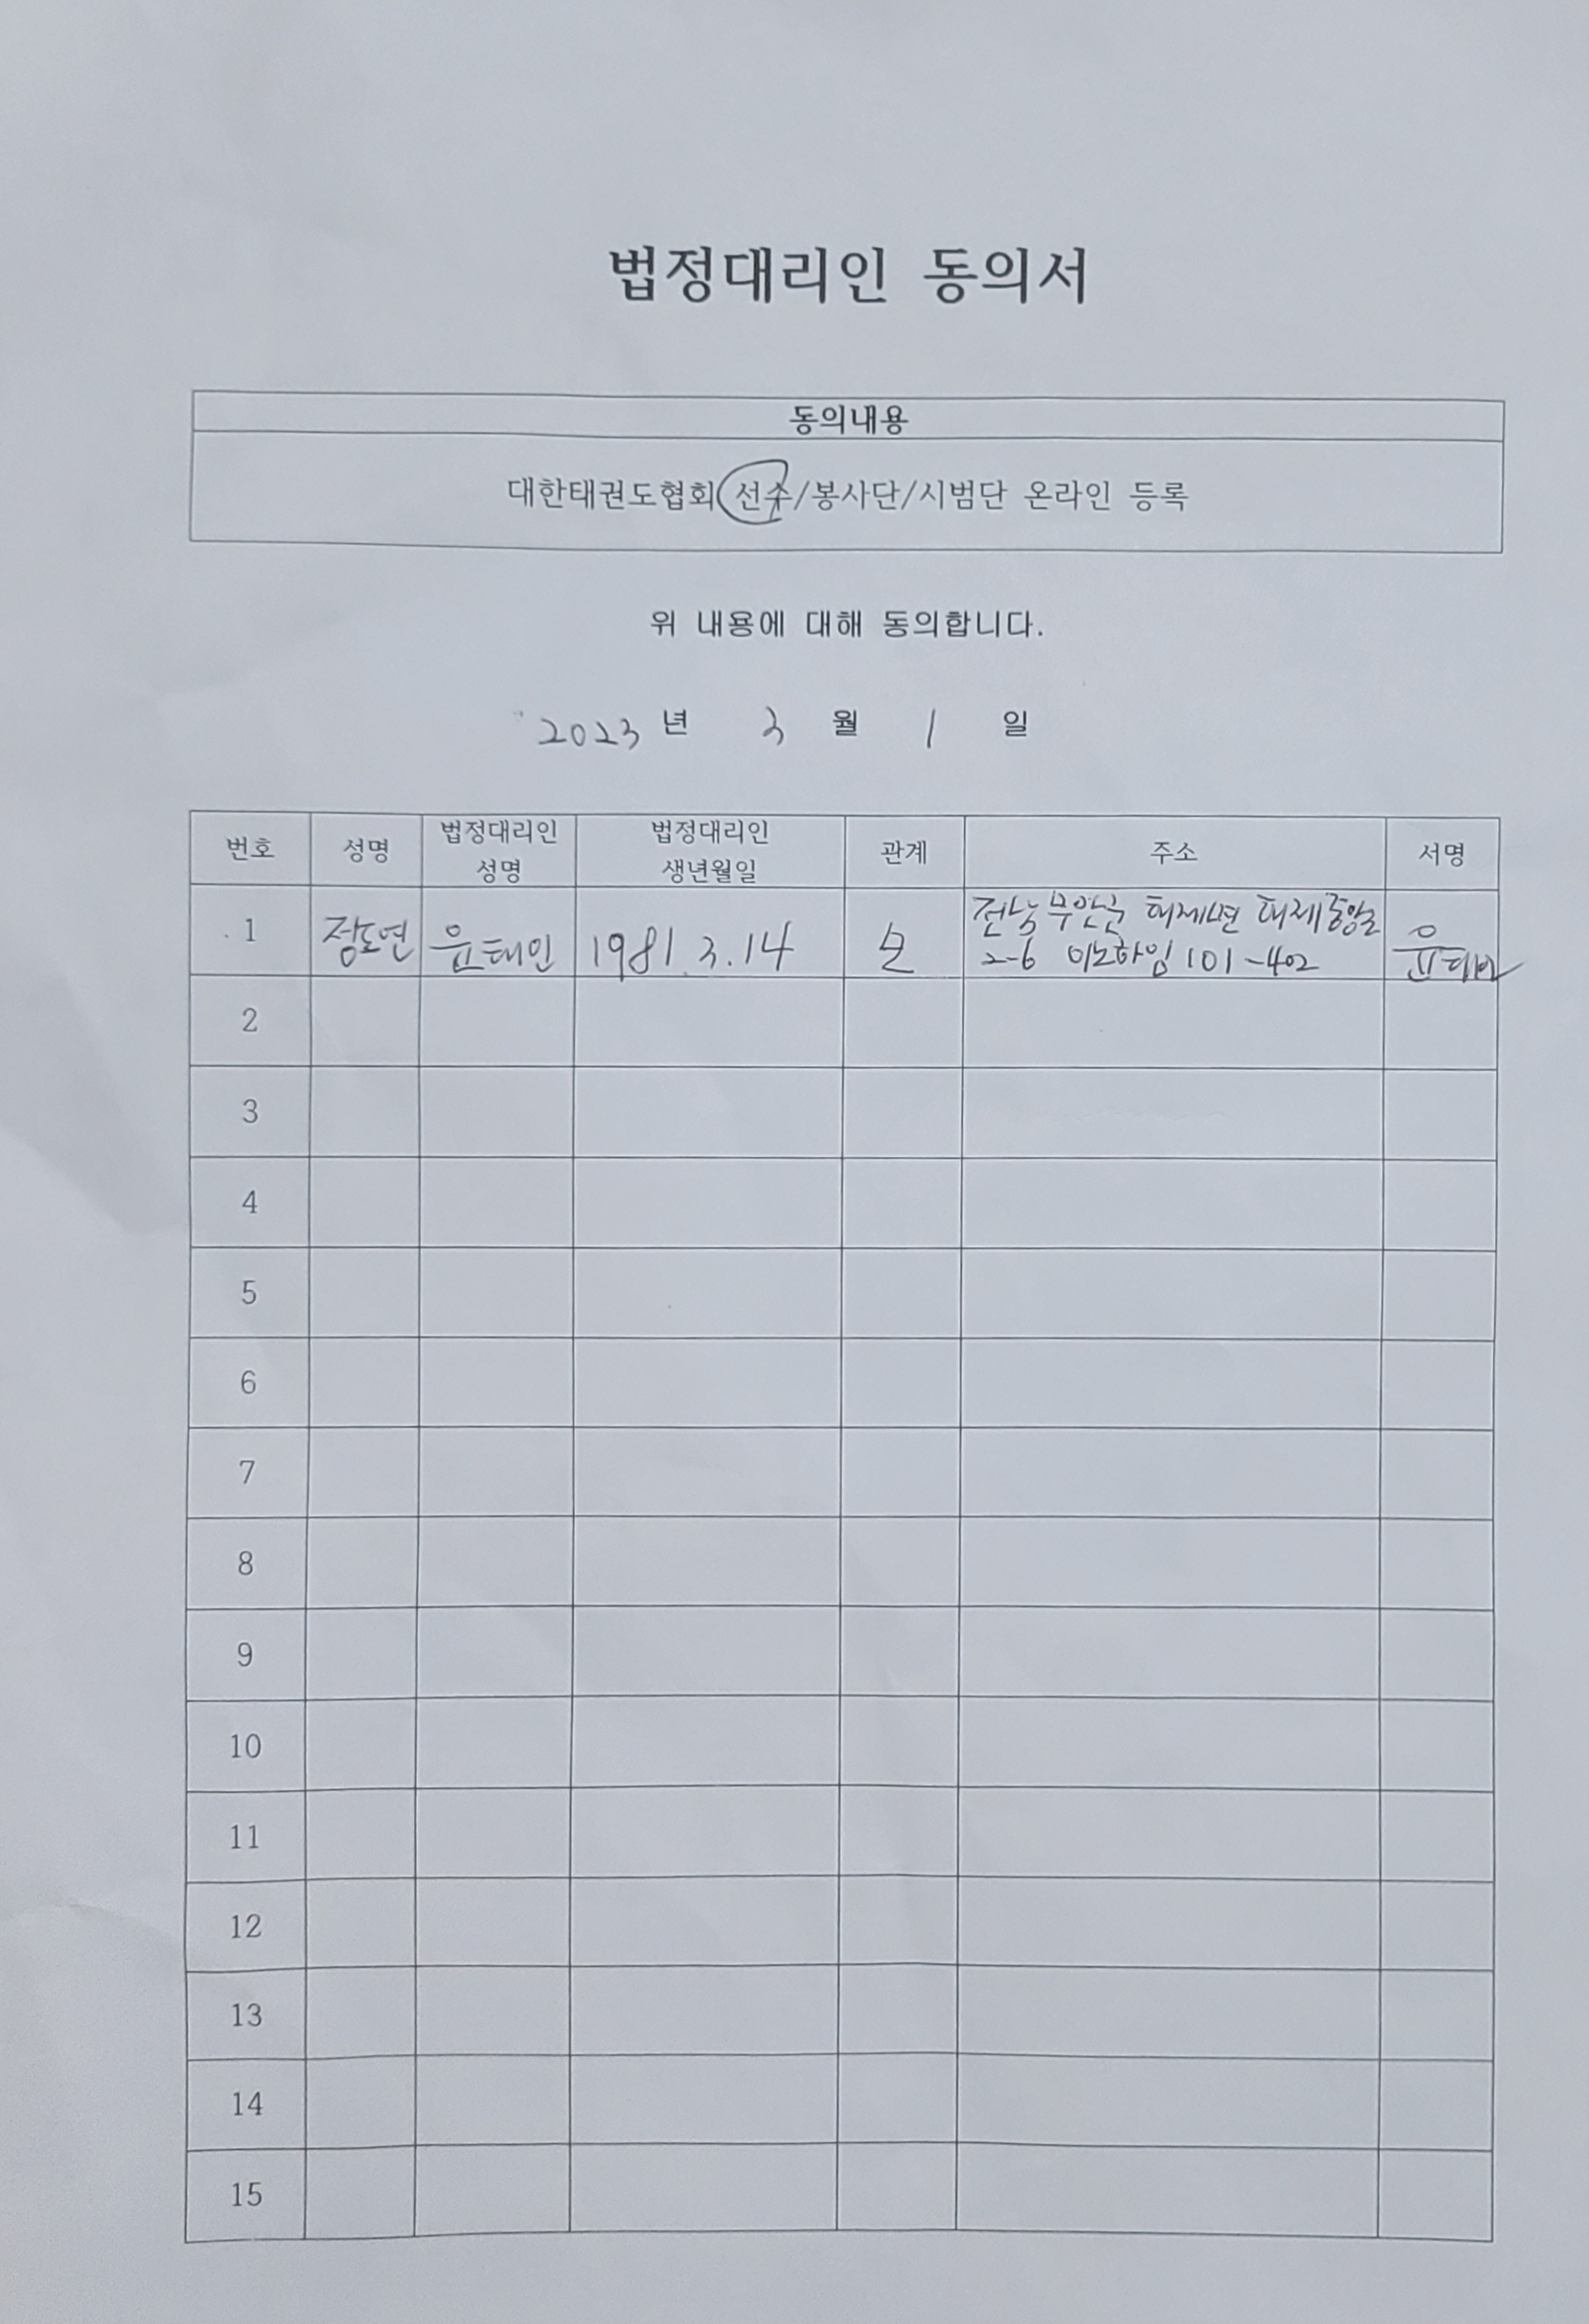 법정대리인 동의서
동의내용
대한태권도협회 선수/봉사단/시범단 온라인 등록
위 내용에 대해 동의합니다.
2023 년 3 월 1 일
번호 성명 법정대리인 성명 법정대리인 생년월일 관계 주소 서명
1 장도연 윤태인 1981.3.14 모
2-6 101-402
2
3
4
5
6
7
8
9
10
11
12
13
14
15